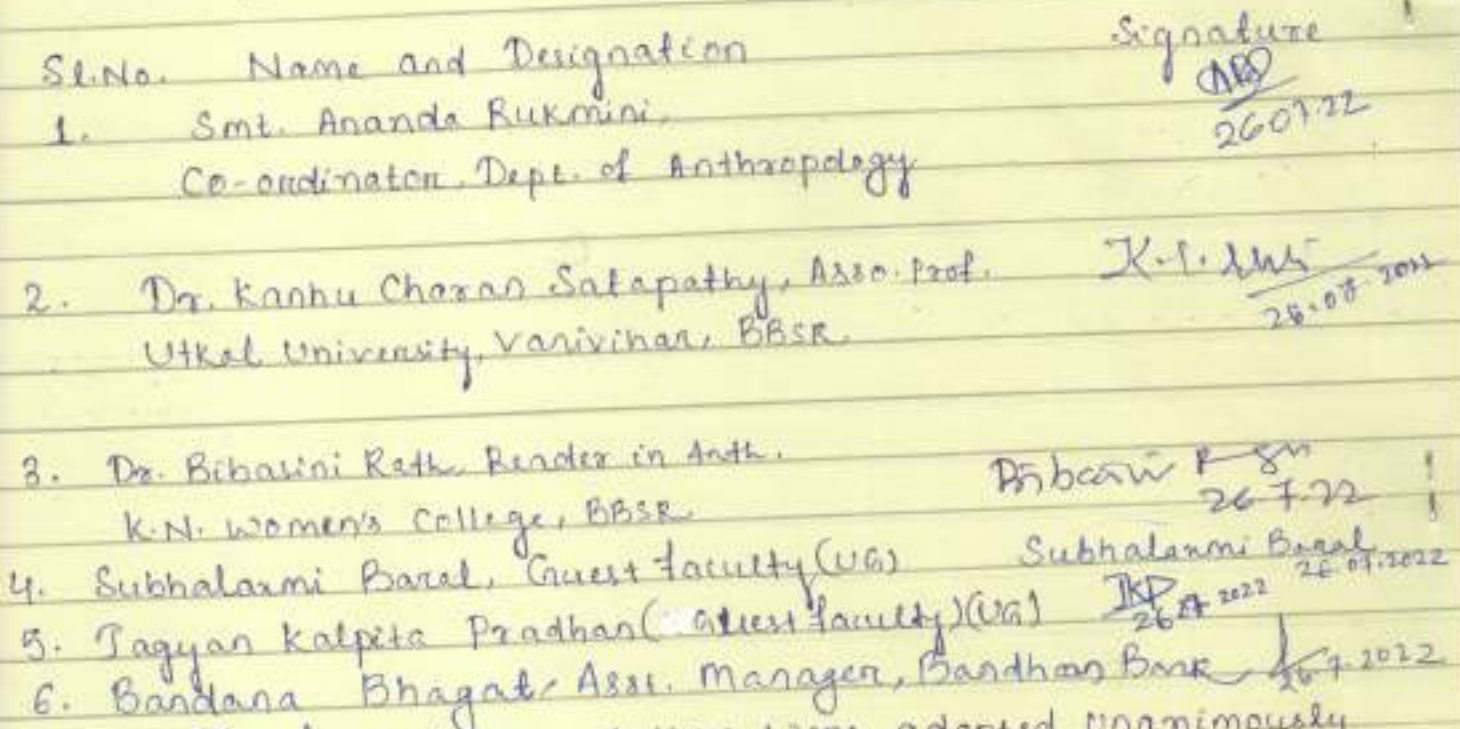 Sl.No. Name and Designation Signature
1. Smt. Ananda Rukmini, 26.07.22
Co-ordinator, Dept. of Anthropology
2. Dr. Kanhu Charan Satapathy, Asso. Prof.
Utkal University, Vanivihar, BBSR 26.07.2022
3. Dr. Bibasini Rath, Reader in Anth.
K.N. Women's College, BBSR 26.7.22
4. Subhalaxmi Baral, Guest faculty (UG) Subhalaxmi Baral 26.07.2022
5. Jagyan Kalpita Pradhan (Guest faculty) (UG) JKP 26.07.2022
6. Bandana Bhagat, Asst. Manager, Bandhan Bank 26.7.2022
adopted unanimously